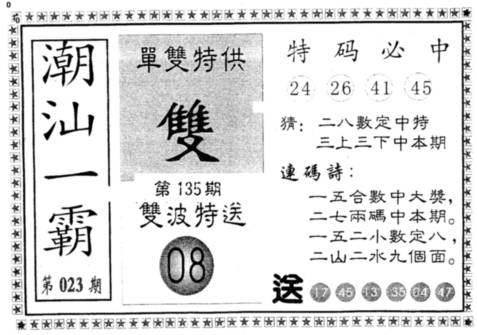 潮汕一霸
第023期
單雙特供
雙
第135期
雙波特送
08
特码必中
24 26 41 45
猜：二八數定中特
三上三下中本期
連碼詩：
一五合數中大獎，
二七兩碼中本期。
一五二小數定八，
二山二水九個面。
送 17 45 13 35 04 47